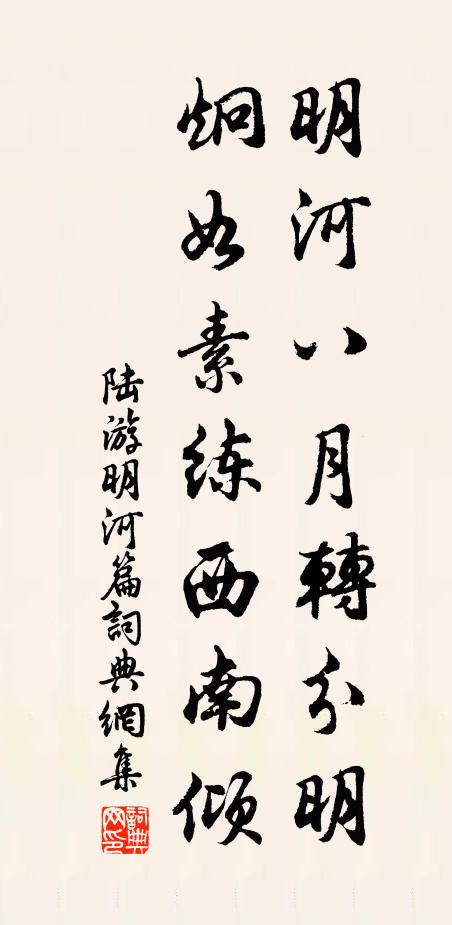 明河八月轉分明
炯如素练西南倾
陆游明河篇詞典網集
詞典网印